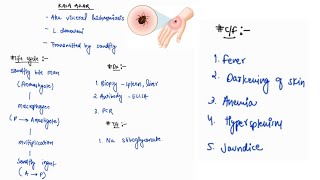 KALA AZAR
- Aka visceral leishmaniasis
- L. donovani
- Transmitted by sandfly
# Life cycle :-
Sandfly bite man
(Promastigote)
macrophages
(P → Amastigote)
multiplication
Sandfly ingest
(A → P)
# Dx :-
1. Biopsy - spleen, liver
2. Antibody - ELISA
3. PCR
# T/t :-
1. Na stibogluconate
# C/f :-
1. Fever
2. Darkening of skin
3. Anemia
4. Hypersplenism
5. Jaundice